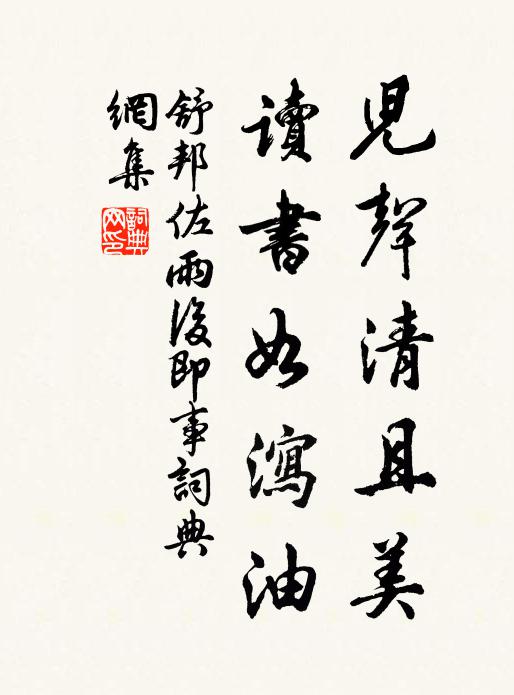 兒聲清且美
讀書如瀉油
舒邦佐雨後即事詞典
網集
詞典
网印